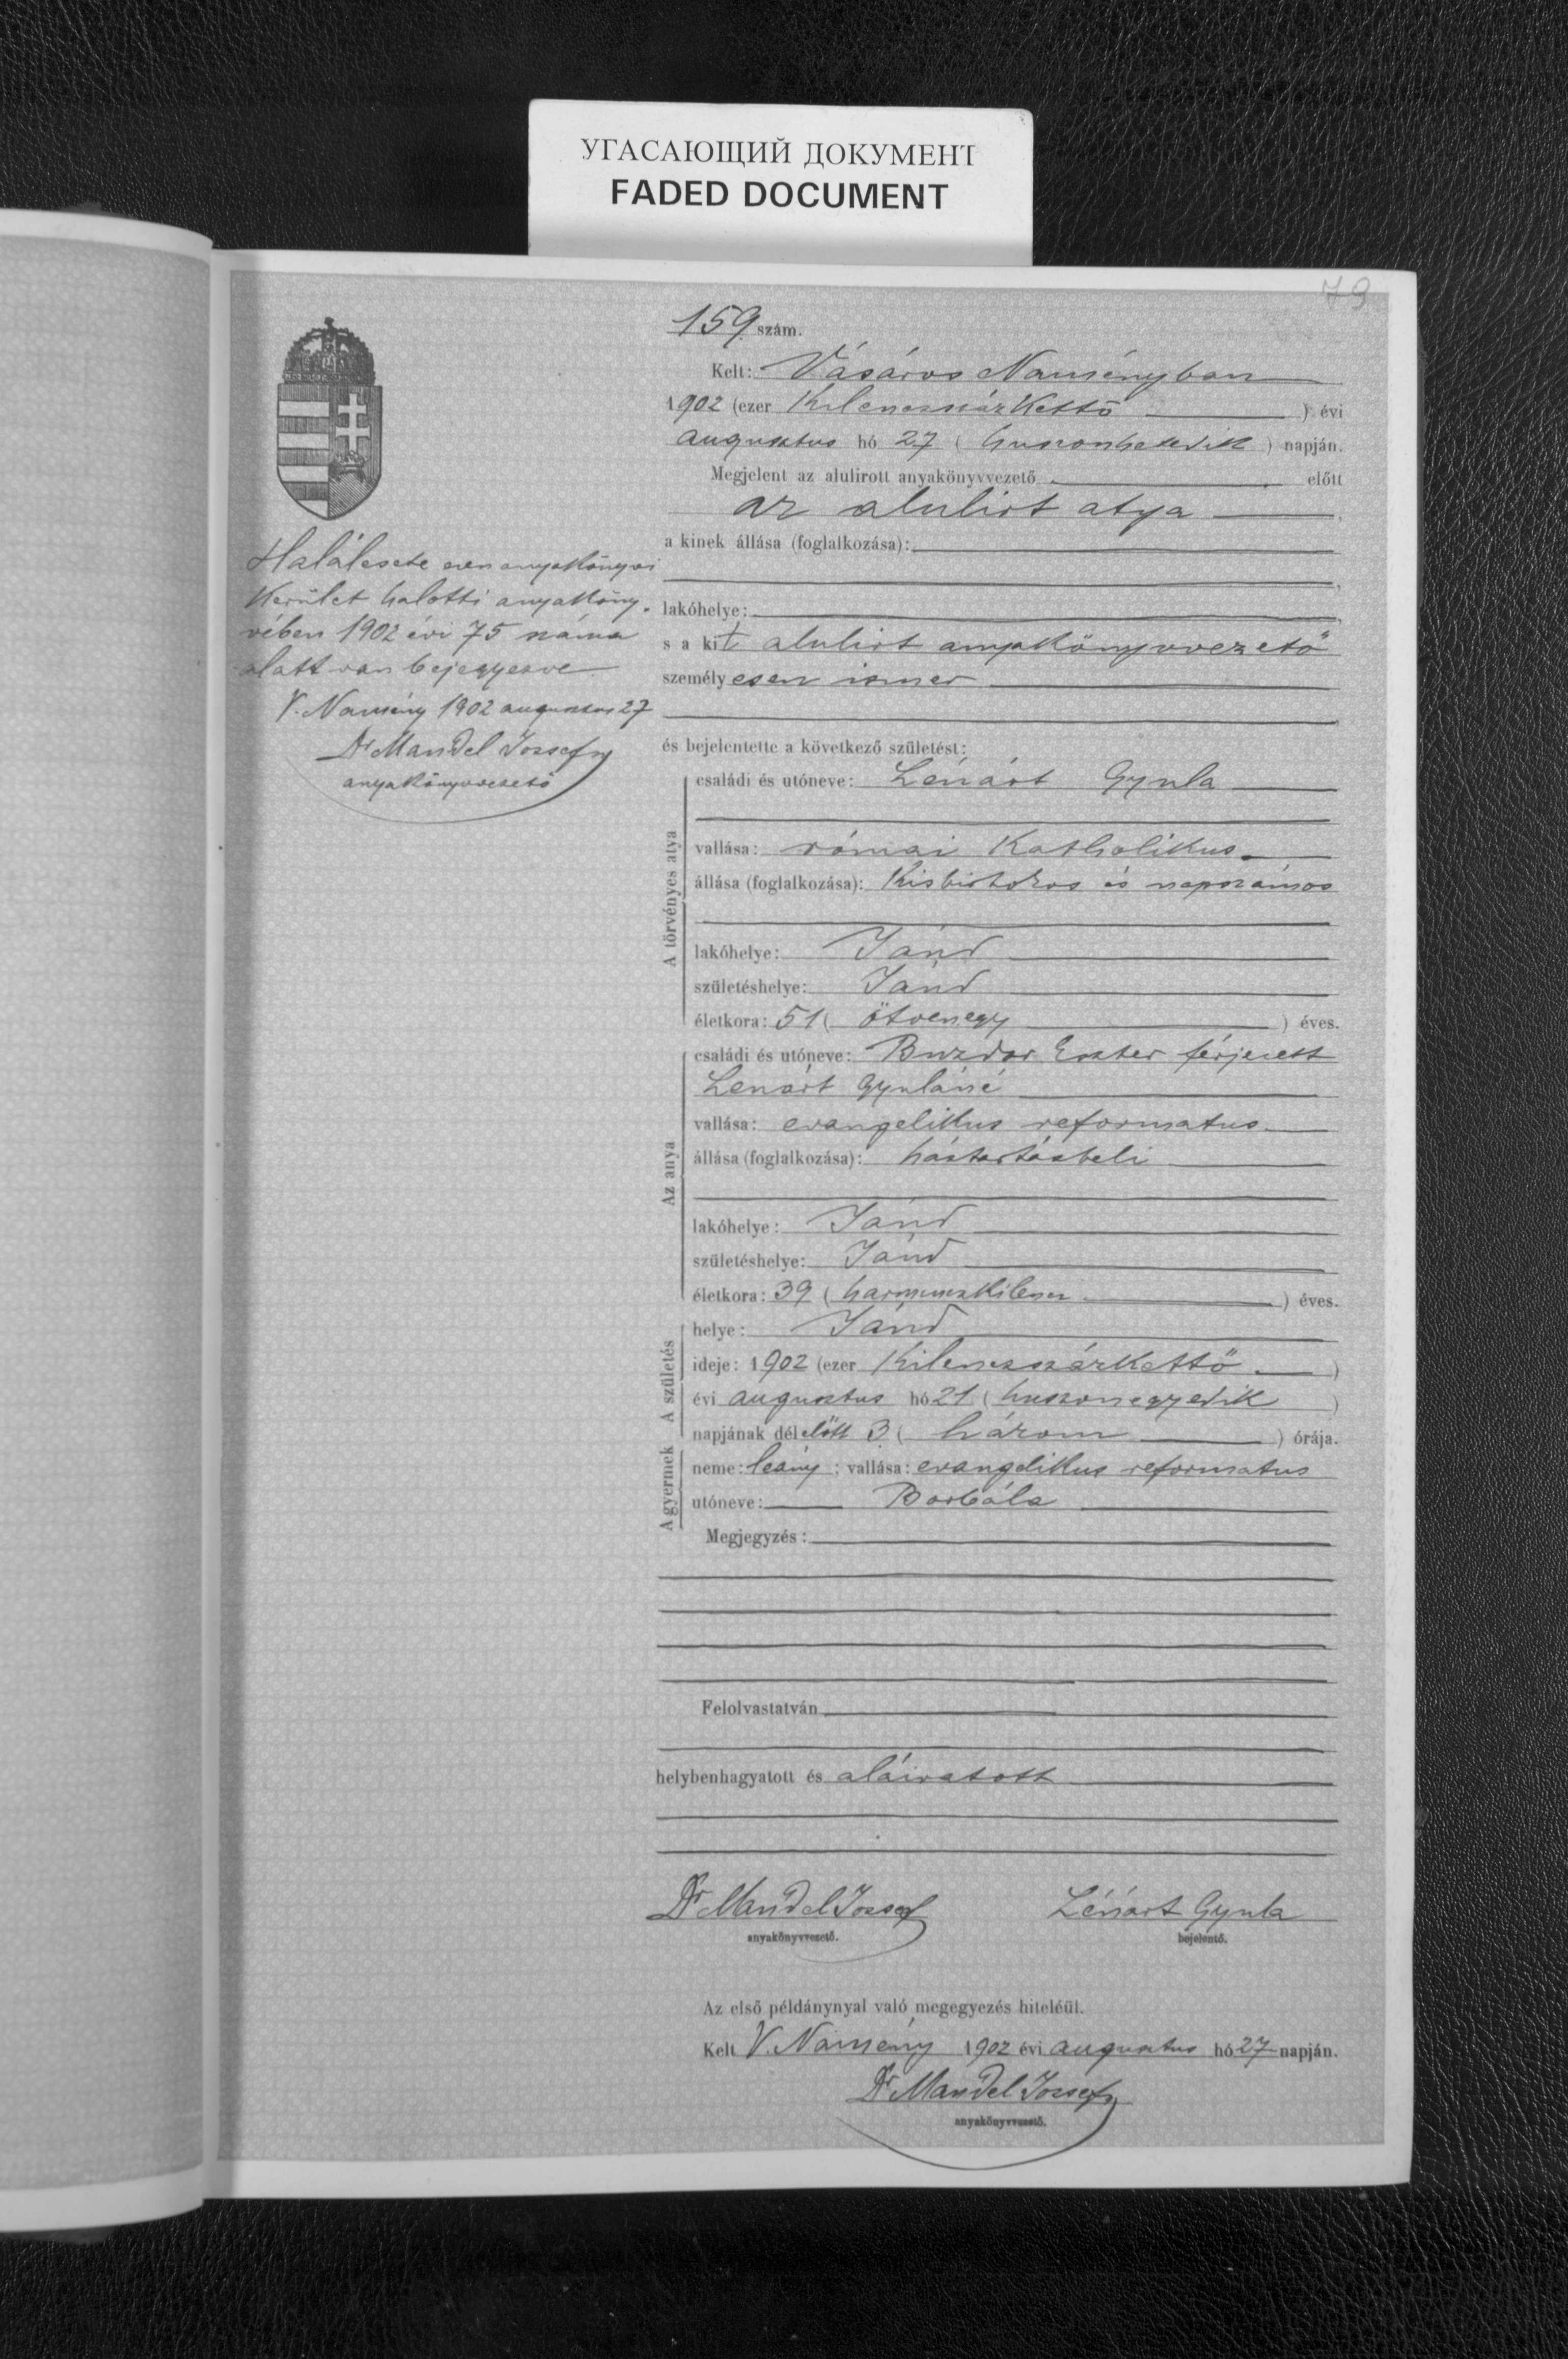 УГАСАЮЩИЙ ДОКУМЕНТ
FADED DOCUMENT
79
159 szám.
Kelt: Vásáros Naményban
1902 (ezer kilenczszázkettő ) évi
augusztus hó 27 ( huszonhetedik ) napján.
Megjelent az alulirott anyakönyvvezető előtt
az alulirt atya ,
a kinek állása (foglalkozása):
,
lakóhelye: ,
s a kit alulirt anyakönyvvezető
személyesen ismer
,
és bejelentette a következő születést:
A törvényes atya
családi és utóneve: Lénárt Gyula
vallása: római katholikus
állása (foglalkozása): kisbirtokos és napszámos
lakóhelye: Jánd
születéshelye: Jánd
életkora: 51 ( ötvenegy ) éves.
Az anya
családi és utóneve: Buzdor Eszter férjezett
Lenárt Gyuláné
vallása: evangelikus reformatus
állása (foglalkozása): háztartásbeli
lakóhelye: Jánd
születéshelye: Jánd
életkora: 39 ( harminczkilencz ) éves.
A születés
helye: Jánd
ideje: 1902 (ezer kilenczszázkettő )
évi augusztus hó 21 ( huszonegyedik )
napjának délelőtt 3 ( három ) órája.
A gyermek
neme: leány ; vallása: evangelikus reformatus
utóneve: Borbála
Megjegyzés:
Felolvastatván
helybenhagyatott és aláiratott
Dr Mandel József Lénárt Gyula
anyakönyvvezető. bejelentő.
Az első példánynyal való megegyezés hiteléül.
Kelt V. Namény 1902 évi augusztus hó 27 napján.
Dr Mandel József
anyakönyvvezető.
Halálesete ezen anyakönyvi
kerület halotti anyaköny-
vében 1902 évi 75 száma
alatt van bejegyezve
V. Namény 1902 augusztus 27
Dr Mandel József
anyakönyvvezető